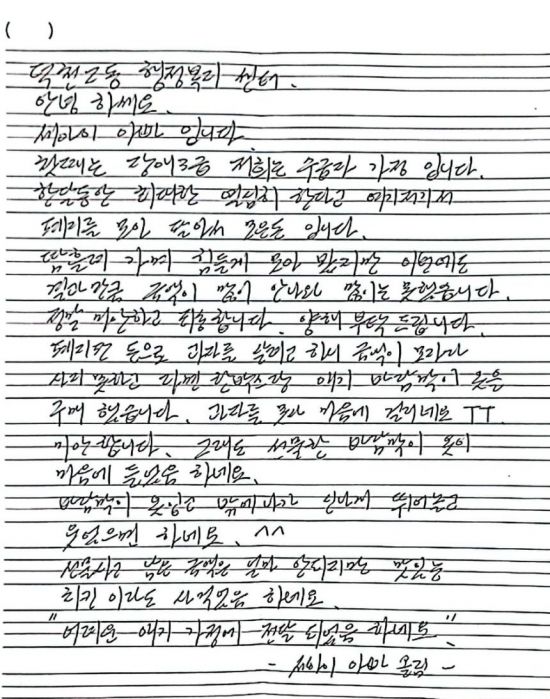 (    )
덕천2동 행정복지 센터.
안녕 하세요.
세아이 아빠 입니다
첫째는 장애3급 저희는 수급자 가정 입니다.
한달동안 최대한 열심히 한다고 여기저기서
폐지를 모아 팔아서 모은돈 입니다.
땀흘려 가며 힘들게 모아 봤지만 이번에도
결과만큼 금액이 많이 안나와 많이는 못했습니다.
정말 미안하고 죄송합니다. 양해 부탁 드립니다.
폐지판 돈으로 과자를 살려고 하니 금액이 모자라
사지 못하고 라면 한박스랑 애기 바람막이 옷은
구매 했습니다. 과자를 못사 마음에 걸리네요 TT.
미안합니다. 그래도 선물한 바람막이 옷이
마음에 들었음 하네요.
바람막이 옷입고 밖에나가 신나게 뛰어놀고
웃었으면 하네요. ^^
선물사고 남은 금액은 얼마 안되지만 맛있는
치킨 이라도 사먹었음 하네요.
"어려운 애기 가정에 전달 되었음 하네요"
- 세아이 아빠 올림 -